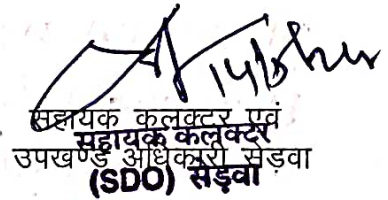 सहायक कलक्टर एवं
सहायक कलक्टर
उपखण्ड अधिकारी सेड़वा
(SDO) सेड़वा